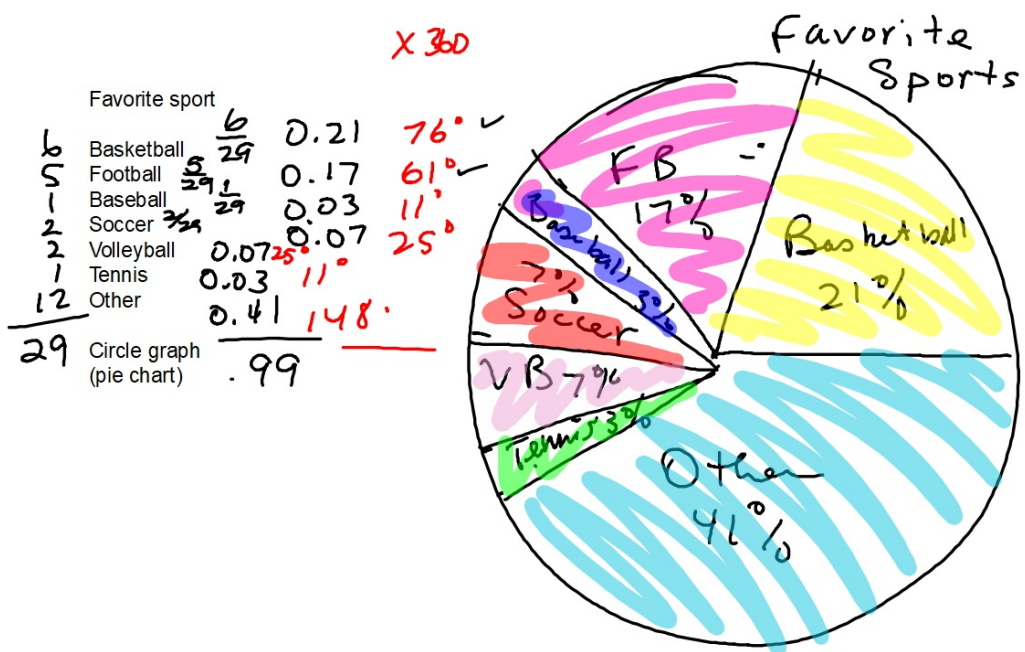 X 360
Favorite sport
6 Basketball 6/29 0.21 76°
5 Football 5/29 0.17 61°
1 Baseball 1/29 0.03 11°
2 Soccer 2/29 0.07 25°
2 Volleyball 0.07 25°
1 Tennis 0.03 11°
12 Other 0.41 148°
29 Circle graph .99
(pie chart)
Favorite
Sports
FB
17%
Basketball
21%
Baseball 3%
7%
Soccer
VB 7%
Tennis 3%
Other
41%